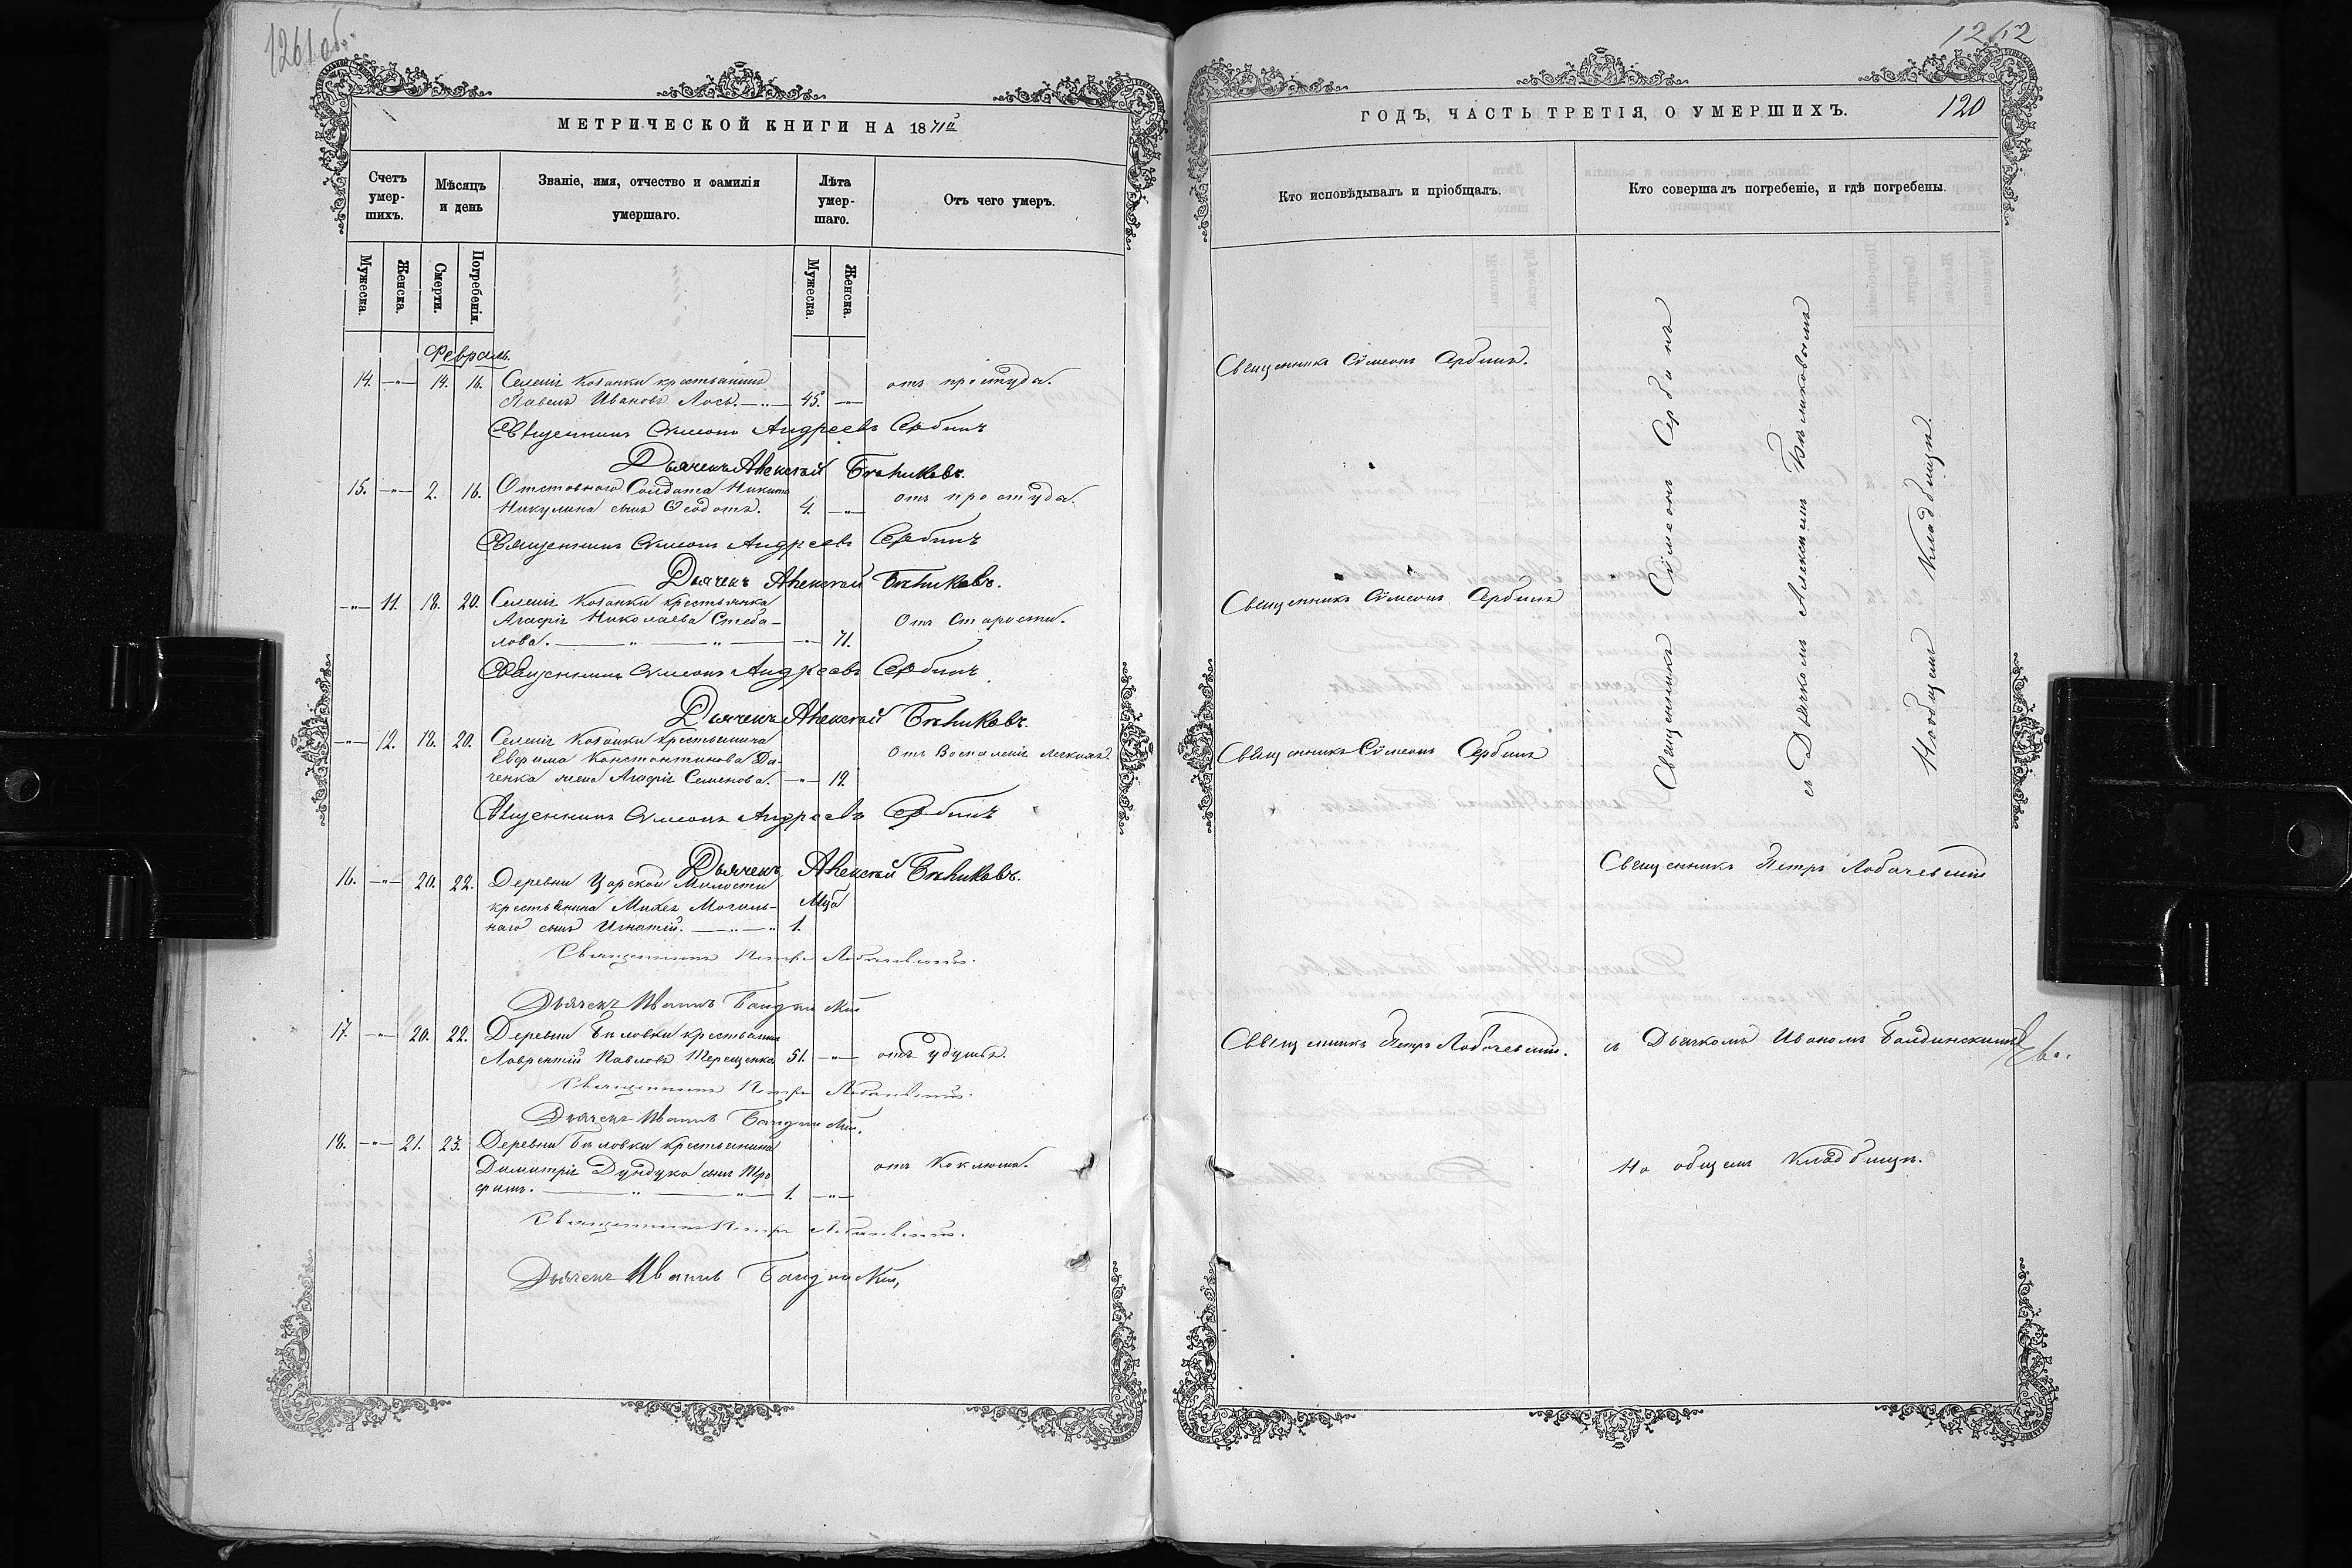 1261об.
МЕТРИЧЕСКОЙ КНИГИ НА 1871й
Счетъ умер-шихъ.
Мѣсяцъ и день
Званіе, имя, отчество и фамилія умершаго.
Лѣта умер-шаго.
Отъ чего умеръ.
Мужеска.
Женска.
Смерти.
Погребенія.
Мужеска.
Женска.
Февраль
14. —"— 14. 16. Селенія Козанки крестьянинъ
Павелъ Ивановъ Лось. —"— 45. —"— отъ простуды.
Священникъ Симеонъ Андреевъ Сербинъ
Дьячекъ Алексѣй Бѣликовъ.
15. —"— 2. 16. Отставного Солдата Никиты
Никулина сынъ Ѳеодотъ. 4. —"— отъ простуды.
Священникъ Симеонъ Андреевъ Сербинъ
Дьячекъ Алексѣй Бѣликовъ.
—"— 11. 18. 20. Селенія Козанки крестьянка
Агафія Николаева Стеба-
лова. —"—"— —"— 71. Отъ Старости.
Священникъ Симеонъ Андреевъ Сербинъ
Дьячекъ Алексѣй Бѣликовъ.
—"— 12. 18. 20. Селенія Козанки крестьянина
Евфима Константинова Да-
ченка жена Агафія Семенова. —"— 19. Отъ Воспаленія легкихъ.
Священникъ Симеонъ Андреевъ Сербинъ
Дьячекъ Алексѣй Бѣликовъ.
16. —"— 20. 22. Деревни Царской Милости
крестьянина Михея Могиль-
наго сынъ Игнатій. —"—" 1.
Священникъ Петръ Лобачевскій.
Дьячекъ Иванъ
17. —"— 20. 22. Деревни Бѣловки крестьянинъ
Лаврентій Павловъ Терещенко. 51. —"— отъ удушья.
Священникъ Петръ Лобачевскій.
Дьячекъ Иванъ
18. —"— 21. 23. Деревни Бѣловки крестьянина
Димитрія Дундука сынъ Тро
фимъ. —"—"— 1. —"— отъ Коклюша.
Священникъ Петръ Лобачевскій.
Дьячекъ Иванъ
1262
ГОДЪ, ЧАСТЬ ТРЕТІЯ, О УМЕРШИХЪ.
120
Кто исповѣдывалъ и пріобщалъ.
Кто совершалъ погребеніе, и гдѣ погребены.
Священникъ Симеонъ Сербинъ.
Священникъ Симеонъ Сербинъ
Священникъ Симеонъ Сербинъ
Священникъ Симеонъ Сербинъ
съ Дьячкомъ Алексѣемъ Бѣликовымъ
На общемъ Кладбищѣ.
Священникъ Петръ Лобачевскій
Священникъ Петръ Лобачевскій.
съ Дьячкомъ Иваномъ Балдинскимъ
На общемъ Кладбищѣ.